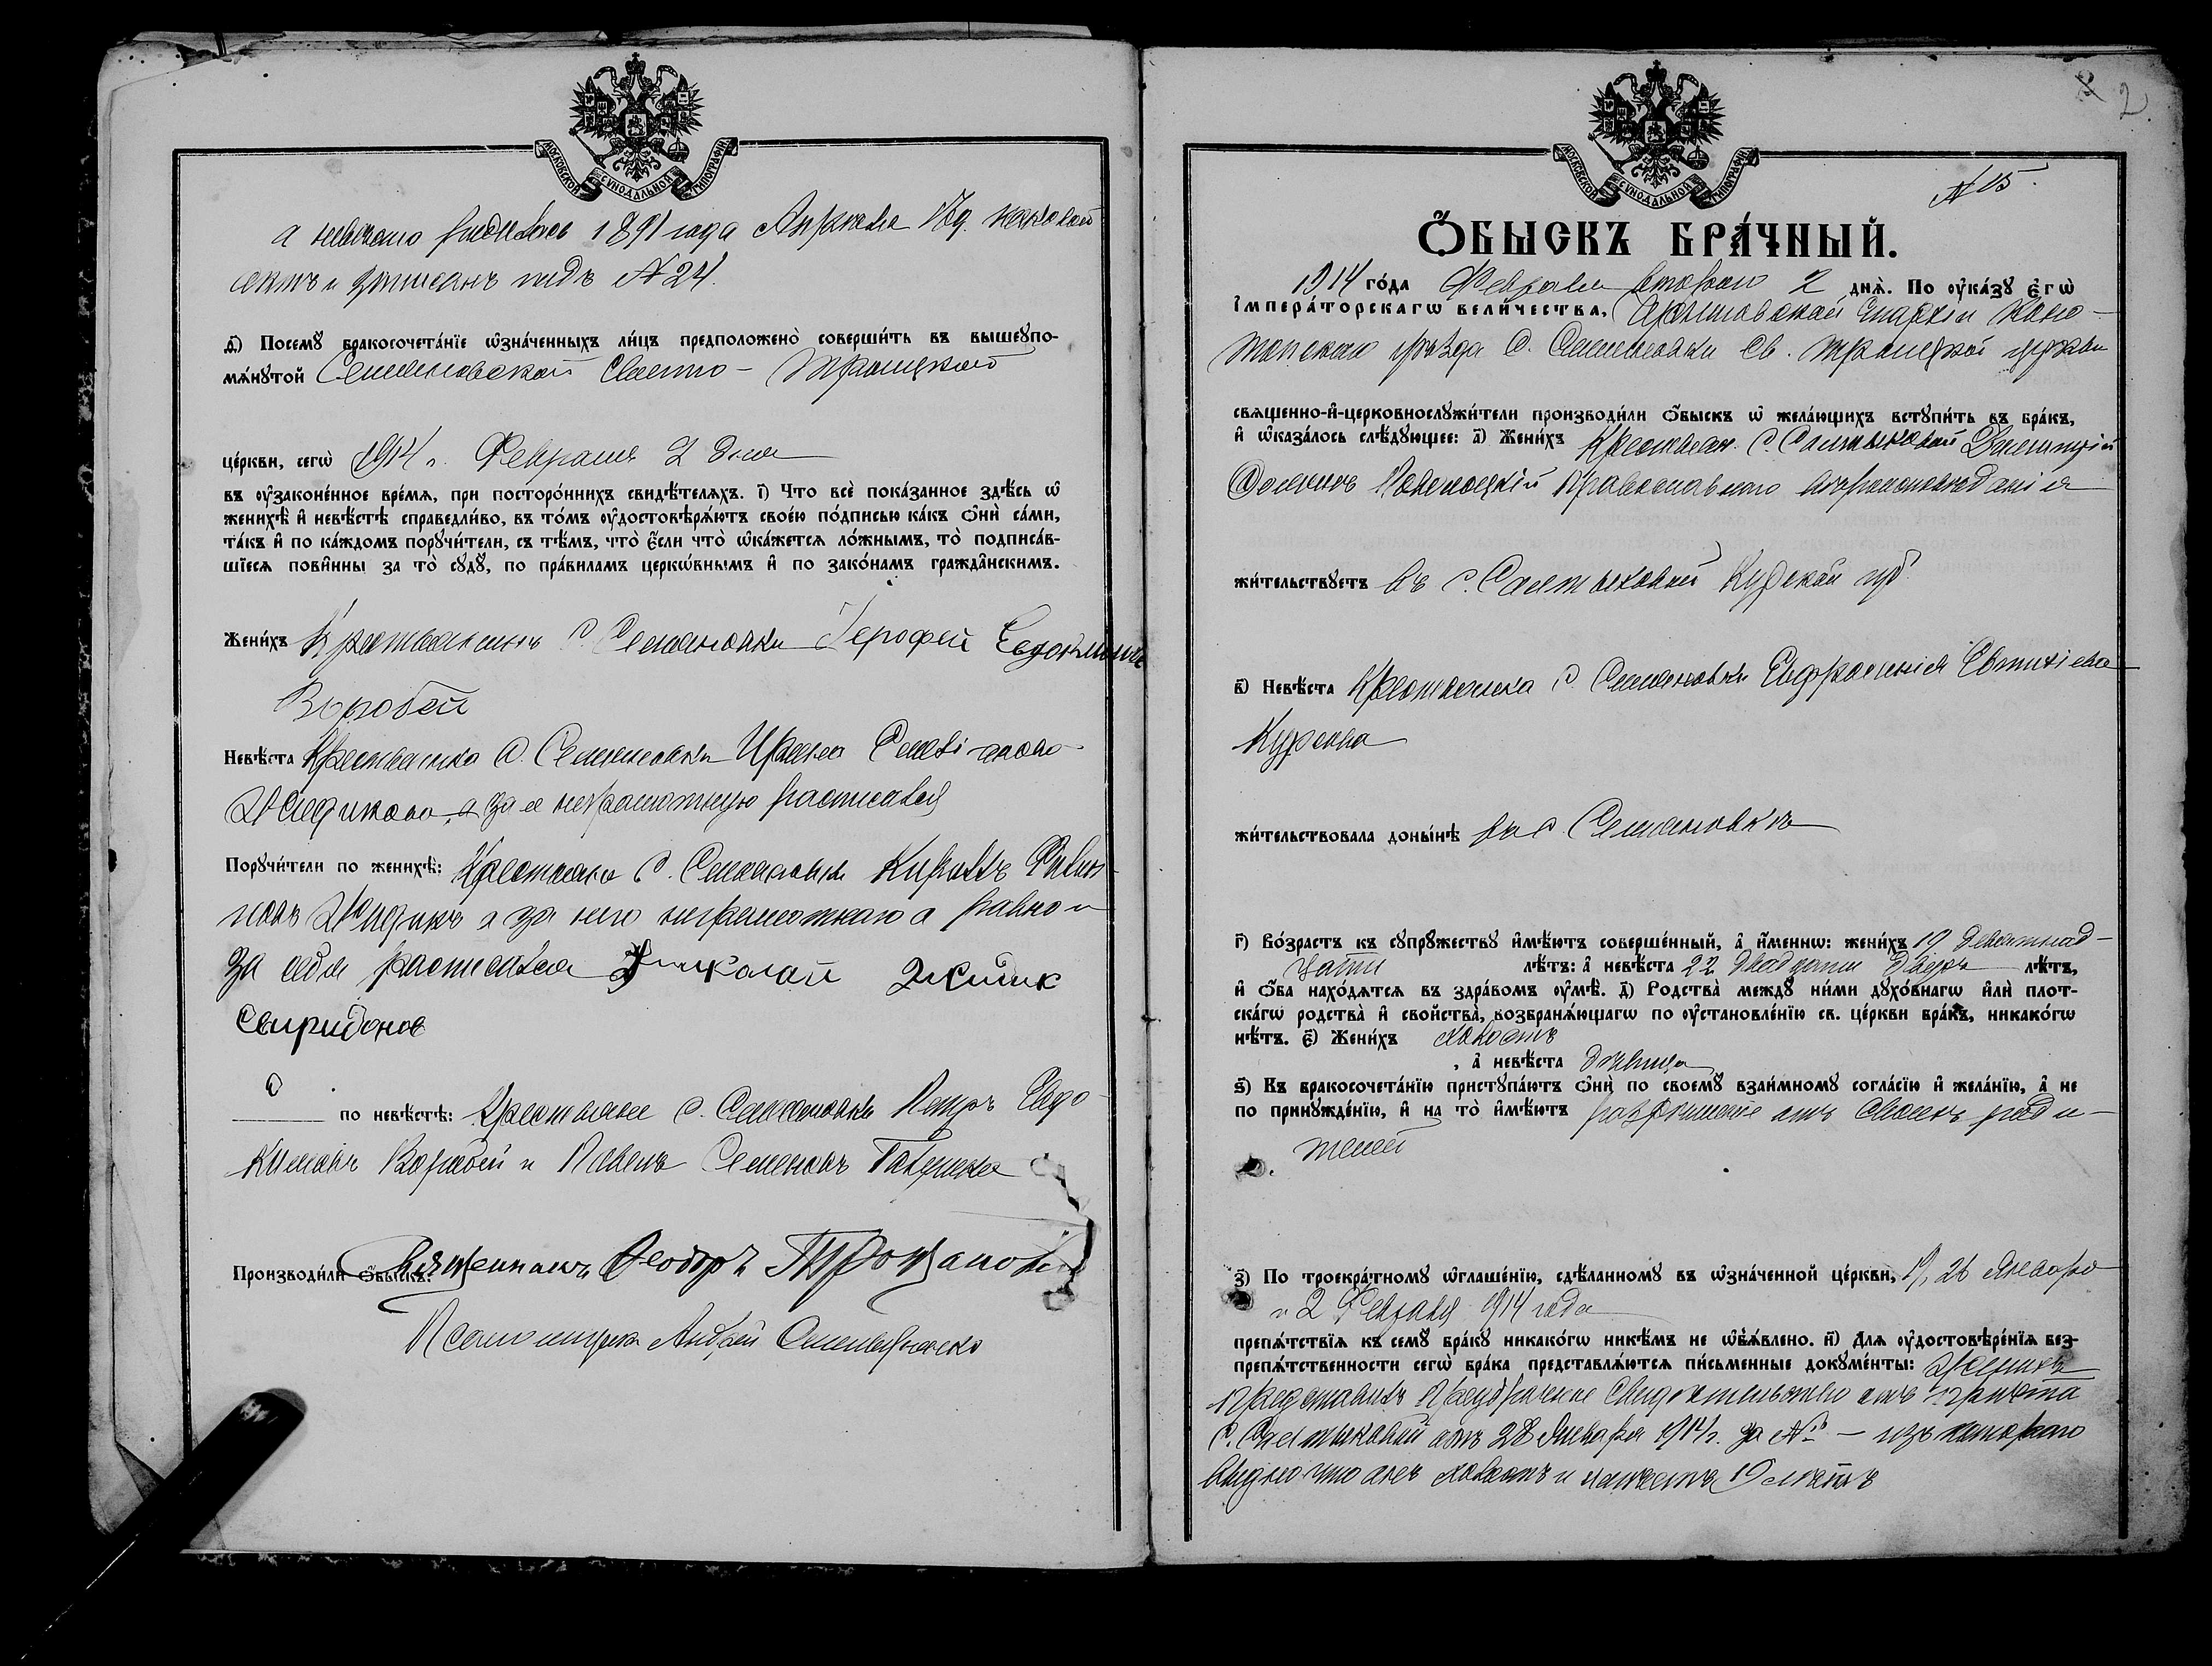 МОСКОВСКОЙ СѴНОДАЛЬНОЙ ТИПОГРАФІИ
а невѣста родилась 1891 года Апрѣля
актъ и записанъ подъ № 24.
д҃) Посемꙋ бракосочета́нїе ѡ҆зна́ченныхъ ли́цъ предположено̀ соверши́ть въ вышеꙋпо-
мѧ́нꙋтой Семеновской Свято-Троицкой
це́ркви, сегѡ̀ 1914 г. Февраля 2 дня
въ ᲂу҆законе́нное вре́мѧ, при посторо́ннихъ свидѣ́телѧхъ. і҃) Что всѐ пока́занное здѣ́сь ѡ҆
женихѣ̀ и҆ невѣ́стѣ справедли́во, въ то́мъ ᲂу҆достовѣрѧ́ютъ свое́ю по́дписью ка́къ ѻ҆нѝ са́ми,
та́къ и҆ по ка́ждомъ порꙋчи́тели, съ тѣ́мъ, что̀ є҆́сли что̀ ѡ҆ка́жетсѧ ло́жнымъ, то̀ подписа́в-
шїесѧ пови́нны за то̀ сꙋдꙋ̀, по пра́виламъ церкѡ́внымъ и҆ по зако́намъ гражда̑нскимъ.
Жени́хъ Крестьянинъ с. Семеновки Іерофей Евдокимовъ
Воробей
Невѣ́ста Крестьянка с. Семеновки Ирина
а за ея неграмотную расписался
Порꙋчи́тели по женихѣ̀: Крестьяне с. Семеновки Филип-
повъ Жидикъ а за него неграмотнаго а равно и
за себя расписался Николай Жидик
Свиридонов
по невѣ́стѣ: Крестьяне с. Семеновки Петръ Евдо-
кимовъ Воробей и Павелъ Семеновъ
Производи́ли ѻ҆́быскъ: Священникъ Ѳеодоръ
Псаломщикъ Андрей
2
№ 15.
МОСКОВСКОЙ СѴНОДАЛЬНОЙ ТИПОГРАФІИ
Ѻ҆́БЫСКЪ БРА́ЧНЫЙ.
1914 го́да Февраля второго 2 днѧ̀. По ᲂу҆ка́зꙋ є҆гѡ̀
і҆мпера́торскагѡ вели́чества, Черниговской Епархіи Коно-
топскаго уѣзда с. Семеновки Св. Троицкой церкви
свѧщенно-и҆-церковнослꙋжи́тели производи́ли ѻ҆́быскъ ѡ҆ жела́ющихъ встꙋпи́ть въ бра́къ,
и҆ ѡ҆каза́лось слѣ́дꙋющее: а҃) Жени́хъ Крестьян. с. Салтыковой Димитрій
православнаго вѣроисповѣданія
жи́тельствꙋетъ въ с. Салтыковой Курской губ.
в҃) Невѣ́ста Крестьянка с. Семеновки Евфросинія
Курсова
жи́тельствовала доны́нѣ въ с. Семеновкѣ
г҃) Во́зрастъ къ сꙋпрꙋ́жествꙋ и҆мѣ́ютъ соверше́нный, а҆ и҆́меннѡ: жени́хъ 19 девятнад-
цати лѣ́тъ: а҆ невѣ́ста 22 двадцати двухъ лѣ́тъ,
и҆ ѻ҆́ба нахо́дѧтсѧ въ здра́вомъ ᲂу҆мѣ̀. д҃) Родства̀ междꙋ̀ ни́ми дꙋхо́внагѡ и҆лѝ плот-
ска́гѡ родства̀ и҆ свойства̀, возбранѧ́ющагѡ по ᲂу҆становле́нїю св. це́ркви бра́къ, никако́гѡ
нѣ́тъ. є҃) Жени́хъ холостъ
, а҆ невѣ́ста дѣвица
ѕ҃) Къ бракосочета́нїю пристꙋпа́ютъ ѻ҆нѝ по своемꙋ̀ взаи́мномꙋ согла́сїю и҆ жела́нїю, а҆ не
по принꙋжде́нїю, и҆ на то̀ и҆мѣ́ютъ разрѣшеніе отъ своихъ роди-
телей
з҃) По троекра́тномꙋ ѡ҆глаше́нїю, сдѣ́ланномꙋ въ ѡ҆зна́ченной це́ркви, 19, 26 Января
и 2 Февраля 1914 года
препѧ́тствїѧ къ семꙋ̀ бра́кꙋ никако́гѡ никѣ́мъ не ѡ҆б̾ѧ́влено. и҃) Длѧ ᲂу҆достовѣре́нїѧ без-
препѧ́тственности сегѡ̀ бра́ка представлѧ́ютсѧ пи́сьменные докꙋме́нты: Женихъ
представилъ предбрачное свидѣтельство отъ причта
с. Салтыковой отъ 28 Января 1914 г. за № — изъ котораго
видно что онъ холостъ и имѣетъ 19 лѣтъ